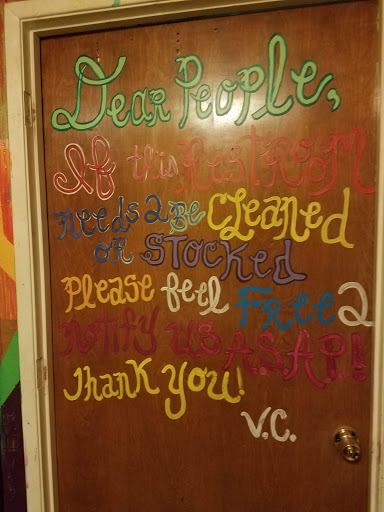 Dear People,
If this RestRoom
needs 2 Be Cleaned
or Stocked
Please feel Free 2
Notify us A.S.A.P.!
Thank you!
V.C.